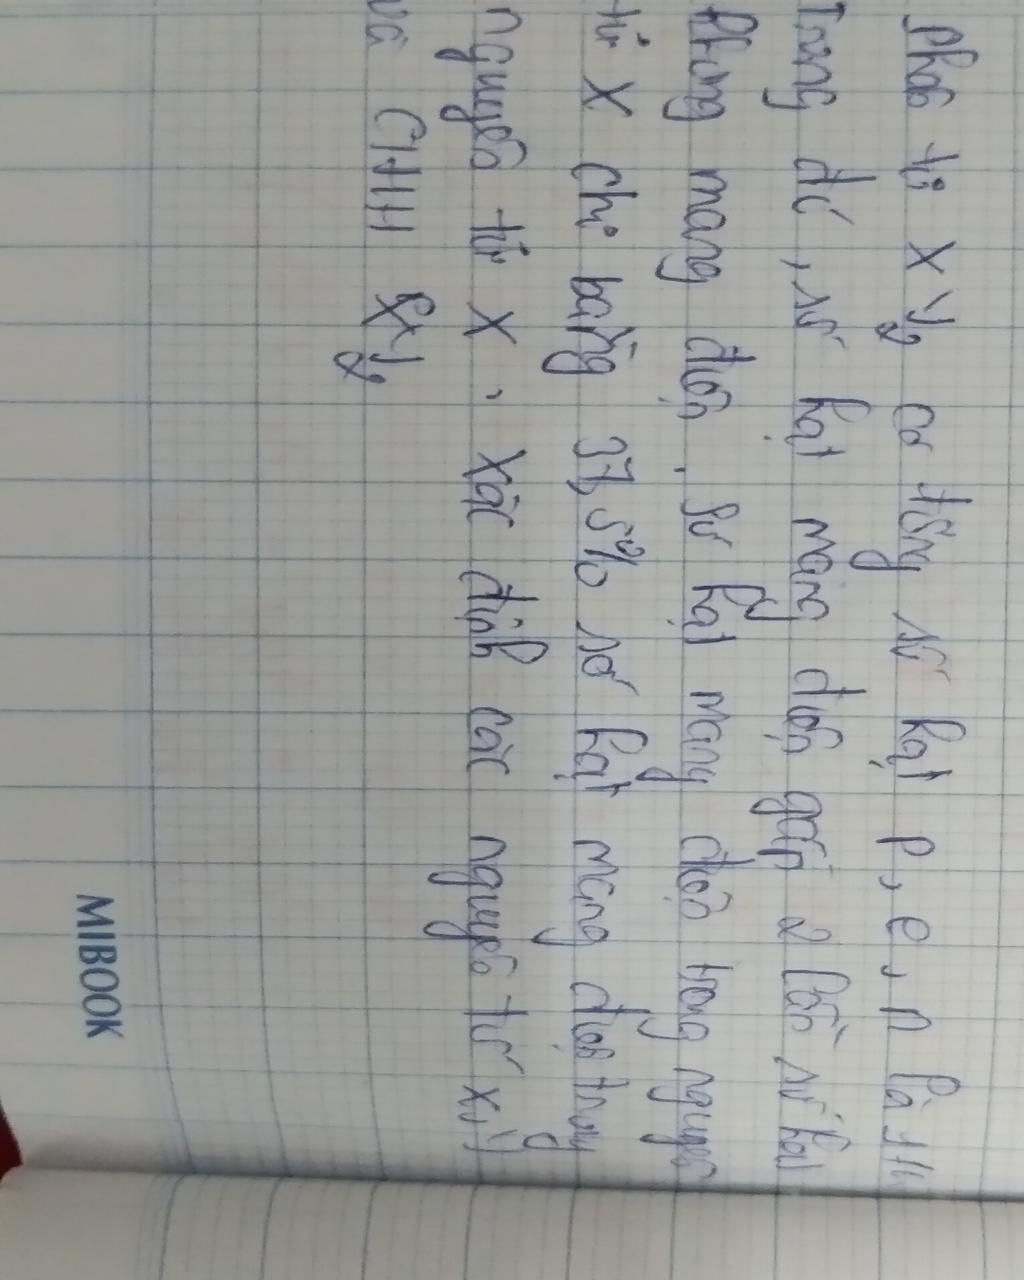 Phân tử XY₂ có tổng số hạt p, e, n là 114
Trong đó, số hạt mang điện gấp 2 lần số hạt
không mang điện. Số hạt mang điện trong nguyên
tử X chỉ bằng 37,5% số hạt mang điện trong
nguyên tử X. Xác định các nguyên tử X, Y
và CTHH XY₂
MIBOOK